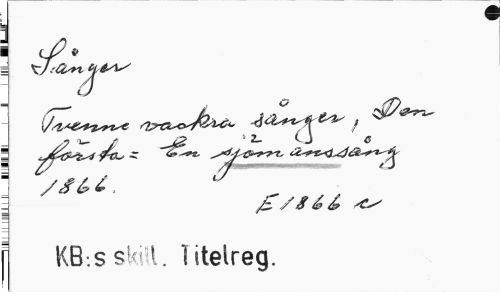 Sånger
Tvenne vackra sånger, Den
första = En sjömanssång
1866.
E 1866 c
KB:s skill. Titelreg.